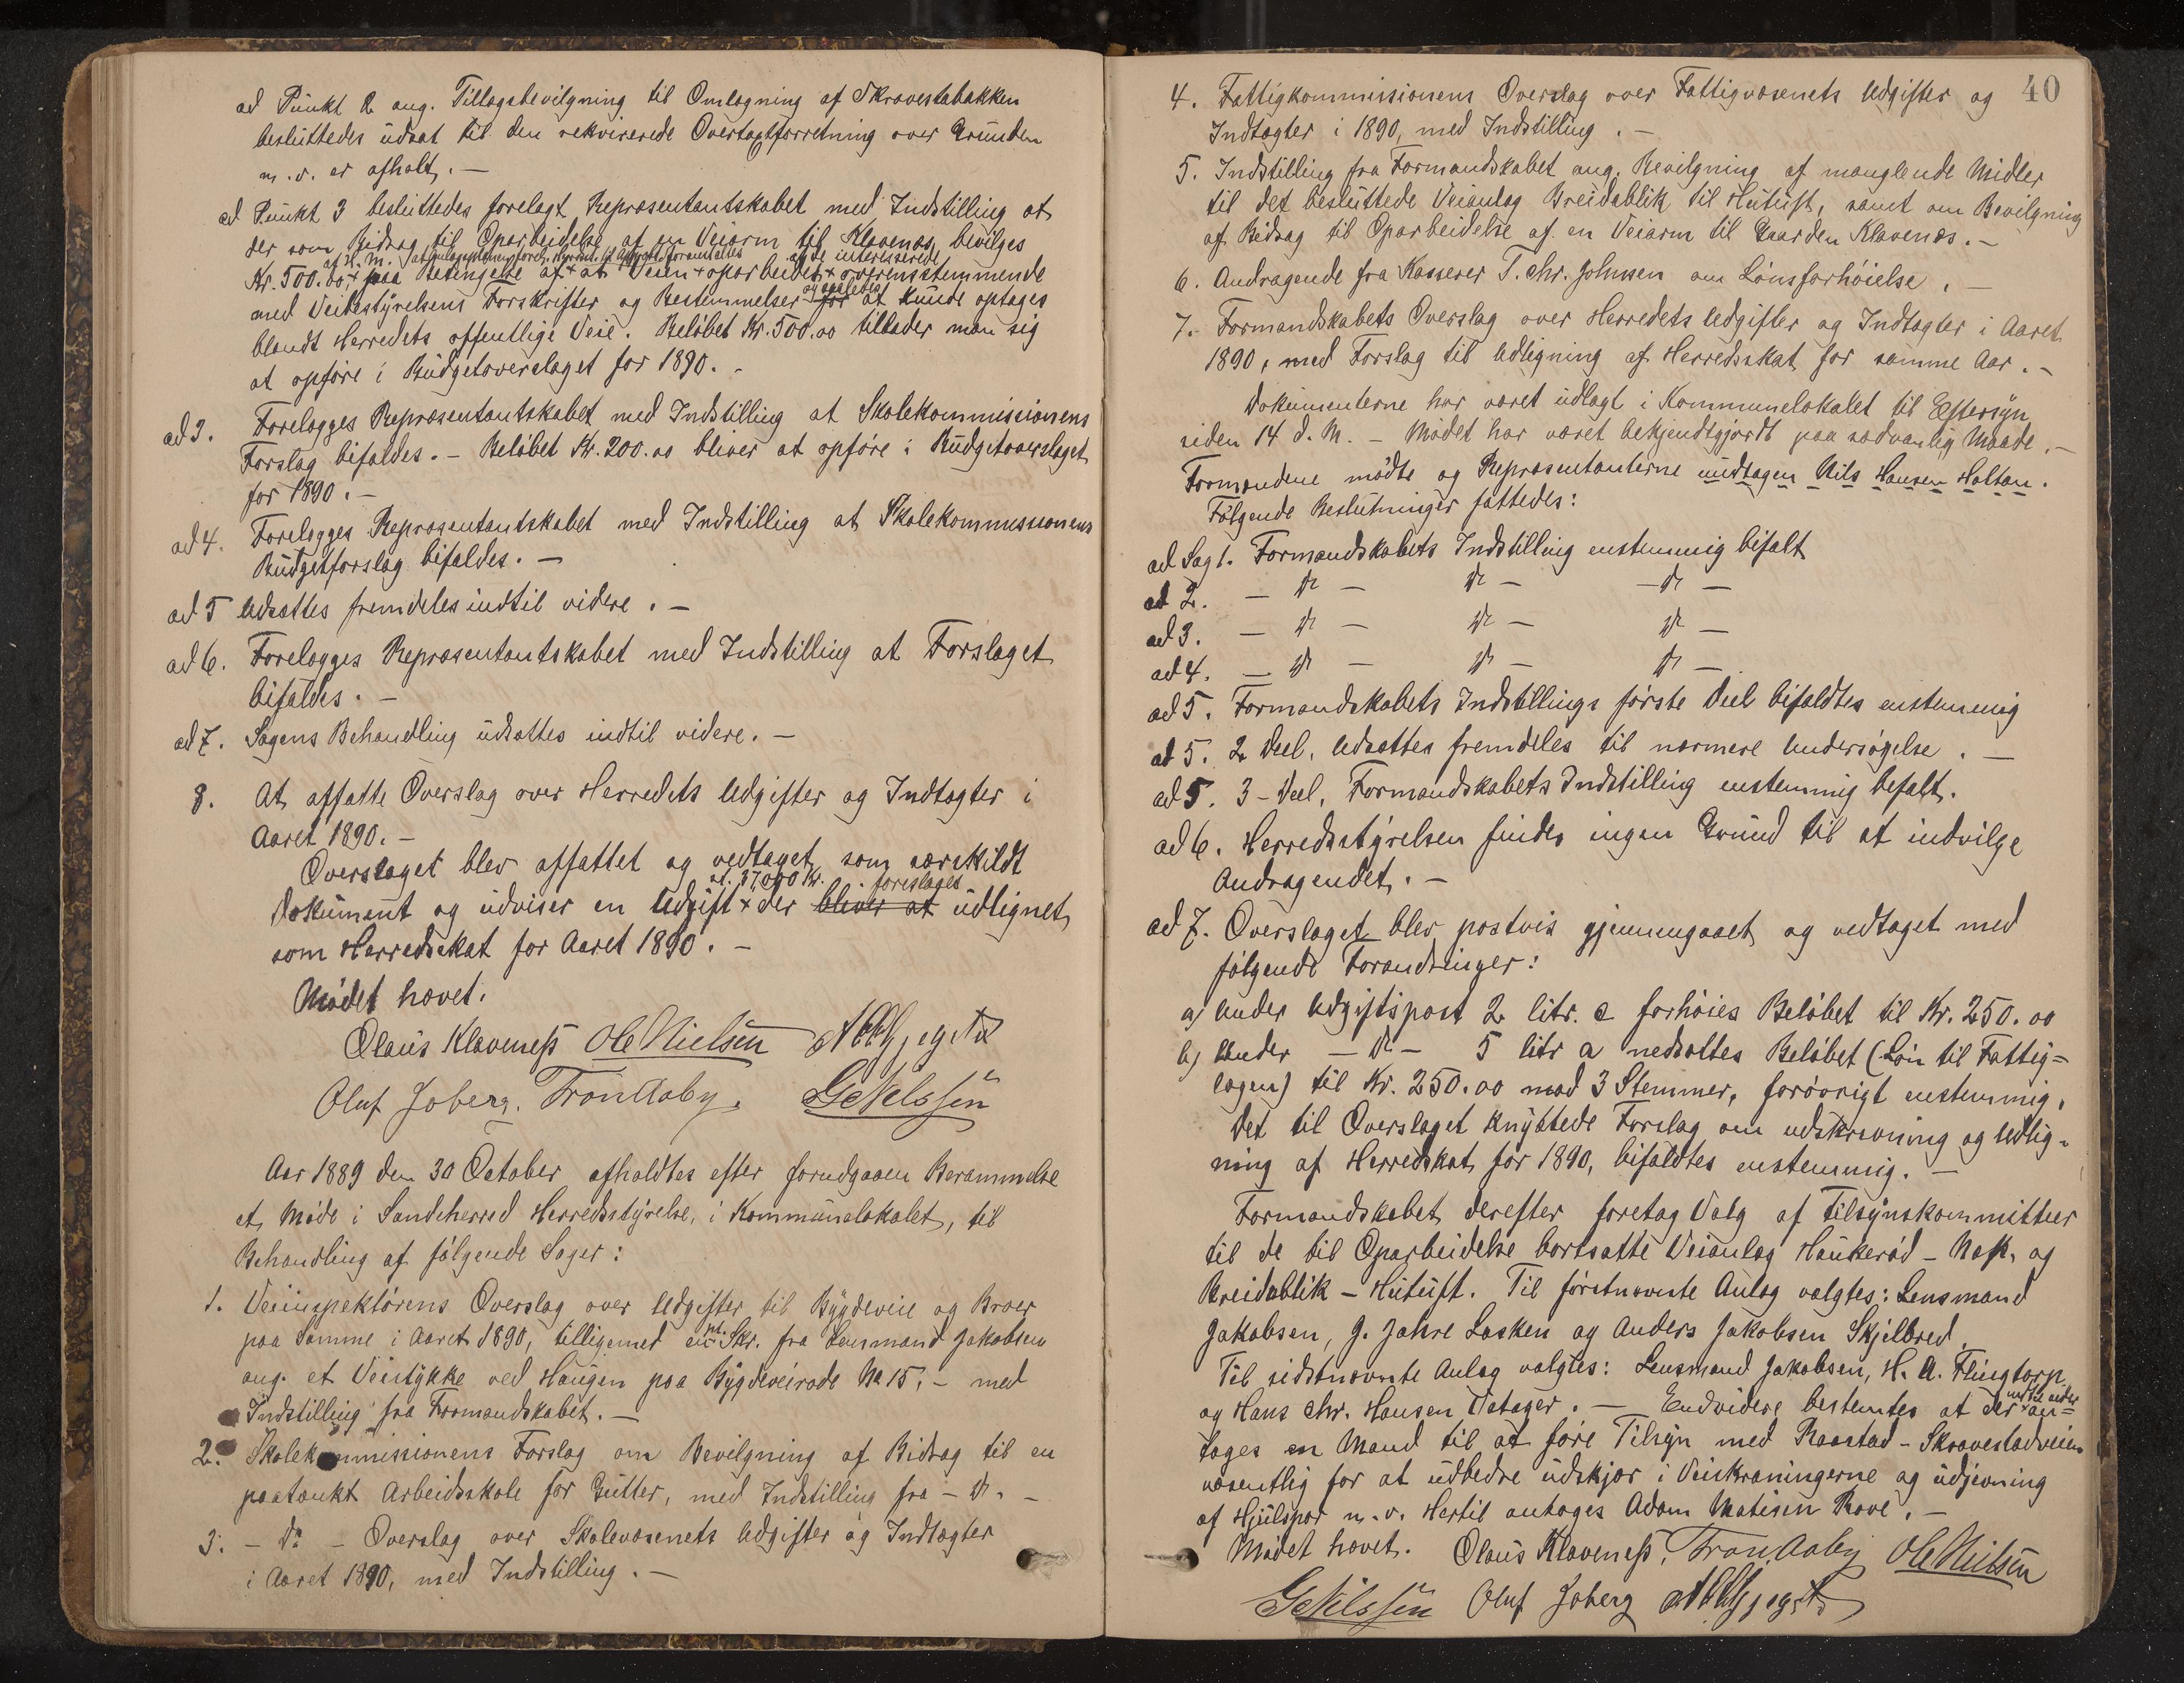 ad Punkt 2 ang. Tillægsbevilgning til Omlægning af Skravestabakken
besluttedes udsat til den rekvirerede Overtaxtforretning over Grunden
m. v. er afholt. –
ad Punkt 3 besluttedes forelagt Repræsentantskabet med Indstilling at
der som Bidrag til Oparbeidelse af en Veiarm til Klavenæs bevilges
af de interesserede
Kr. 500.00, + paa Betingelse af + at Veien + oparbeides + overensstemmende
og saaledes
med Veibestyrelsens Forskrifter og Bestemmelser for at kunde optages
blandt Herredets offentlige Veie. Beløbet Kr. 500.00 tilbøder man sig
at opføre i Budgetoverslaget for 1890. –
ad 3. Forelægges Repræsentantskabet med Indstilling at Skolekommissionens
Forslag bifaldes. – Beløbet Kr. 200.00 bliver at opføre i Budgetoverslaget
for 1890. –
ad 4. Forelægges Repræsentantskabet med Indstilling at Skolekommissionens
Budgetforslag bifaldes. –
ad 5 Udsættes fremdeles indtil videre. –
ad 6. Forelægges Repræsentantskabet med Indstilling at Forslaget
bifaldes. –
ad 7. Sagens Behandling udsættes indtil videre. –
8. At affatte Overslag over Herredets Udgifter og Indtægter i
Aaret 1890. –
Overslaget blev affattet og vedtaget som særskildt
af 37,000 Kr. foreslages
Dokument og udviser en Udgift + der bliver at udlignet
som Herredsskat for Aaret 1890. –
Mødet hævet.
Olaus Klaveness Ole Nielsen
Oluf Joberg. Tron Aaby. G. Nilssen
Aar 1889 den 30 October afholdtes efter forudgaaen Berammelse
et Møde i Sandeherred Herredsstyrelse, i Kommunelokalet, til
Behandling af følgende Sager:
1. Veiinspektørens Overslag over Udgifter til Bygdeveie og Broer
paa Samme i Aaret 1890, tilligemed en Skr. fra Lensmand Jakobsen
ang. et Veistykke ved Haugen paa Bygdeveirode No 15, – med
Indstilling fra Formandskabet. –
2. Skolekommissionens Forslag om Bevilgning af Bidrag til en
paatænkt Arbeidsskole for Gutter, med Indstilling fra – Do. –
3. – Do – Overslag over Skolevæsenets Udgifter og Indtægter
i Aaret 1890, med Indstilling. –
40
4. Fattigkommissionens Overslag over Fattigvæsenets Udgifter og
Indtægter i 1890, med Indstilling. –
5. Indstilling fra Formandskabet ang. Bevilgning af manglende Midler
til det besluttede Veianlæg Breidablik til Hutuft, samt om Bevilgning
af Bidrag til Oparbeidelse af en Veiarm til Gaarden Klavenæs. –
6. Andragende fra Kasserer T. Chr. Johnsen om Lønsforhøielse. –
7. Formandskabets Overslag over Herredets Udgifter og Indtægter i Aaret
1890, med Forslag til Udligning af Herredsskat for samme Aar. –
Dokumenterne har været udlagt i Kommunelokalet til Eftersyn
siden 14 d. M. – Mødet har været bekjendtgjordt paa sædvanlig Maade. –
Formændene mødte og Repræsentanterne undtagen Nils Hansen Haltan.
Følgende Beslutninger fattedes:
ad Sag 1. Formandskabets Indstilling enstemmig bifalt
ad 2. – Do – Do – – Do –
ad 3. – Do – Do – Do –
ad 4. – Do – Do – Do –
ad 5. Formandskabets Indstillings første Deel bifaldtes enstemmig
ad 5. 2 Deel. Udsættes fremdeles til nærmere Undersøgelse. –
ad 5. 3 – Deel. Formandskabets Indstilling enstemmig befalt.
ad 6. Herredsstyrelsen finder ingen Grund til at indvilge
Andragendet. –
ad 7. Overslaget blev postvis gjennemgaaet og vedtaget med
følgende Forandringer:
a) Under Udgiftspost 2 litr. c forhøies Beløbet til Kr. 250.00
b) Under – Do – 5 litr a nedsættes Beløbet (Løn til Fattig=
lægen) til Kr. 250.00 mod 3 Stemmer, forøvrigt enstemmig.
Det til Overslaget knyttede Forslag om udskrivning og Udlig=
ning af Herredskat for 1890, bifaldtes enstemmig. –
Formandskabet derefter foretag Valg af Tilsynskommitteer
til de til Oparbeidelse bortsatte Veianlæg Haukerød – Nøk. og
Breidablik – Hutuft. Til førstnævnte Anlæg valgtes: Lensmand
Jakobsen, J. Jahre Lasken og Anders Jakobsen Skjelbred
Til sidstnævnte Anlæg valgtes: Lensmand Jakobsen, H. A. Flingtorp
og Hans Chr. Hansen Vatager. – Endvidere bestemtes at der + an=
indtil videre
tages en Mand til at føre Tilsyn med Raastad – Skravestadveien
væsentlig for at udbedre udskjær i Veiskraningerne og udjevning
af Hjulspor m. v. Hertil antages Adam Matisen Rove. –
Mødet hævet. Olaus Klaveness. Tron Aaby Ole Nielsen
G. Nilssen Oluf Joberg